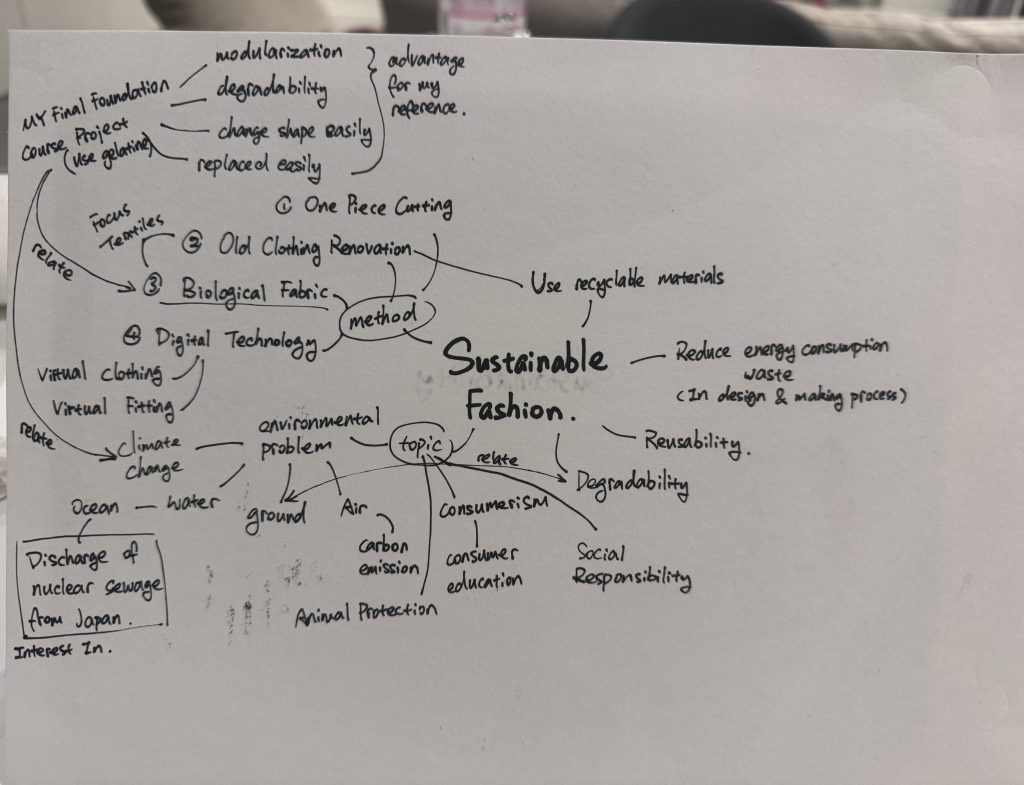 modularization
degradability
change shape easily
replaced easily
advantage
for my
reference.
MY Final Foundation
Course Project
(Use gelatine)
relate
relate
① One Piece Cutting
② Old Clothing Renovation
③ Biological Fabric
④ Digital Technology
Focus
Textiles
Virtual Clothing
Virtual Fitting
method
Sustainable
Fashion.
Use recyclable materials
Reduce energy consumption
waste
(In design & making process)
Reusability.
Degradability
relate
topic
environmental
problem
Climate
change
Ocean
Water
ground
Air
Carbon
emission
Discharge of
nuclear sewage
from Japan.
Interest In.
Animal Protection
Consumerism
consumer
education
Social
Responsibility